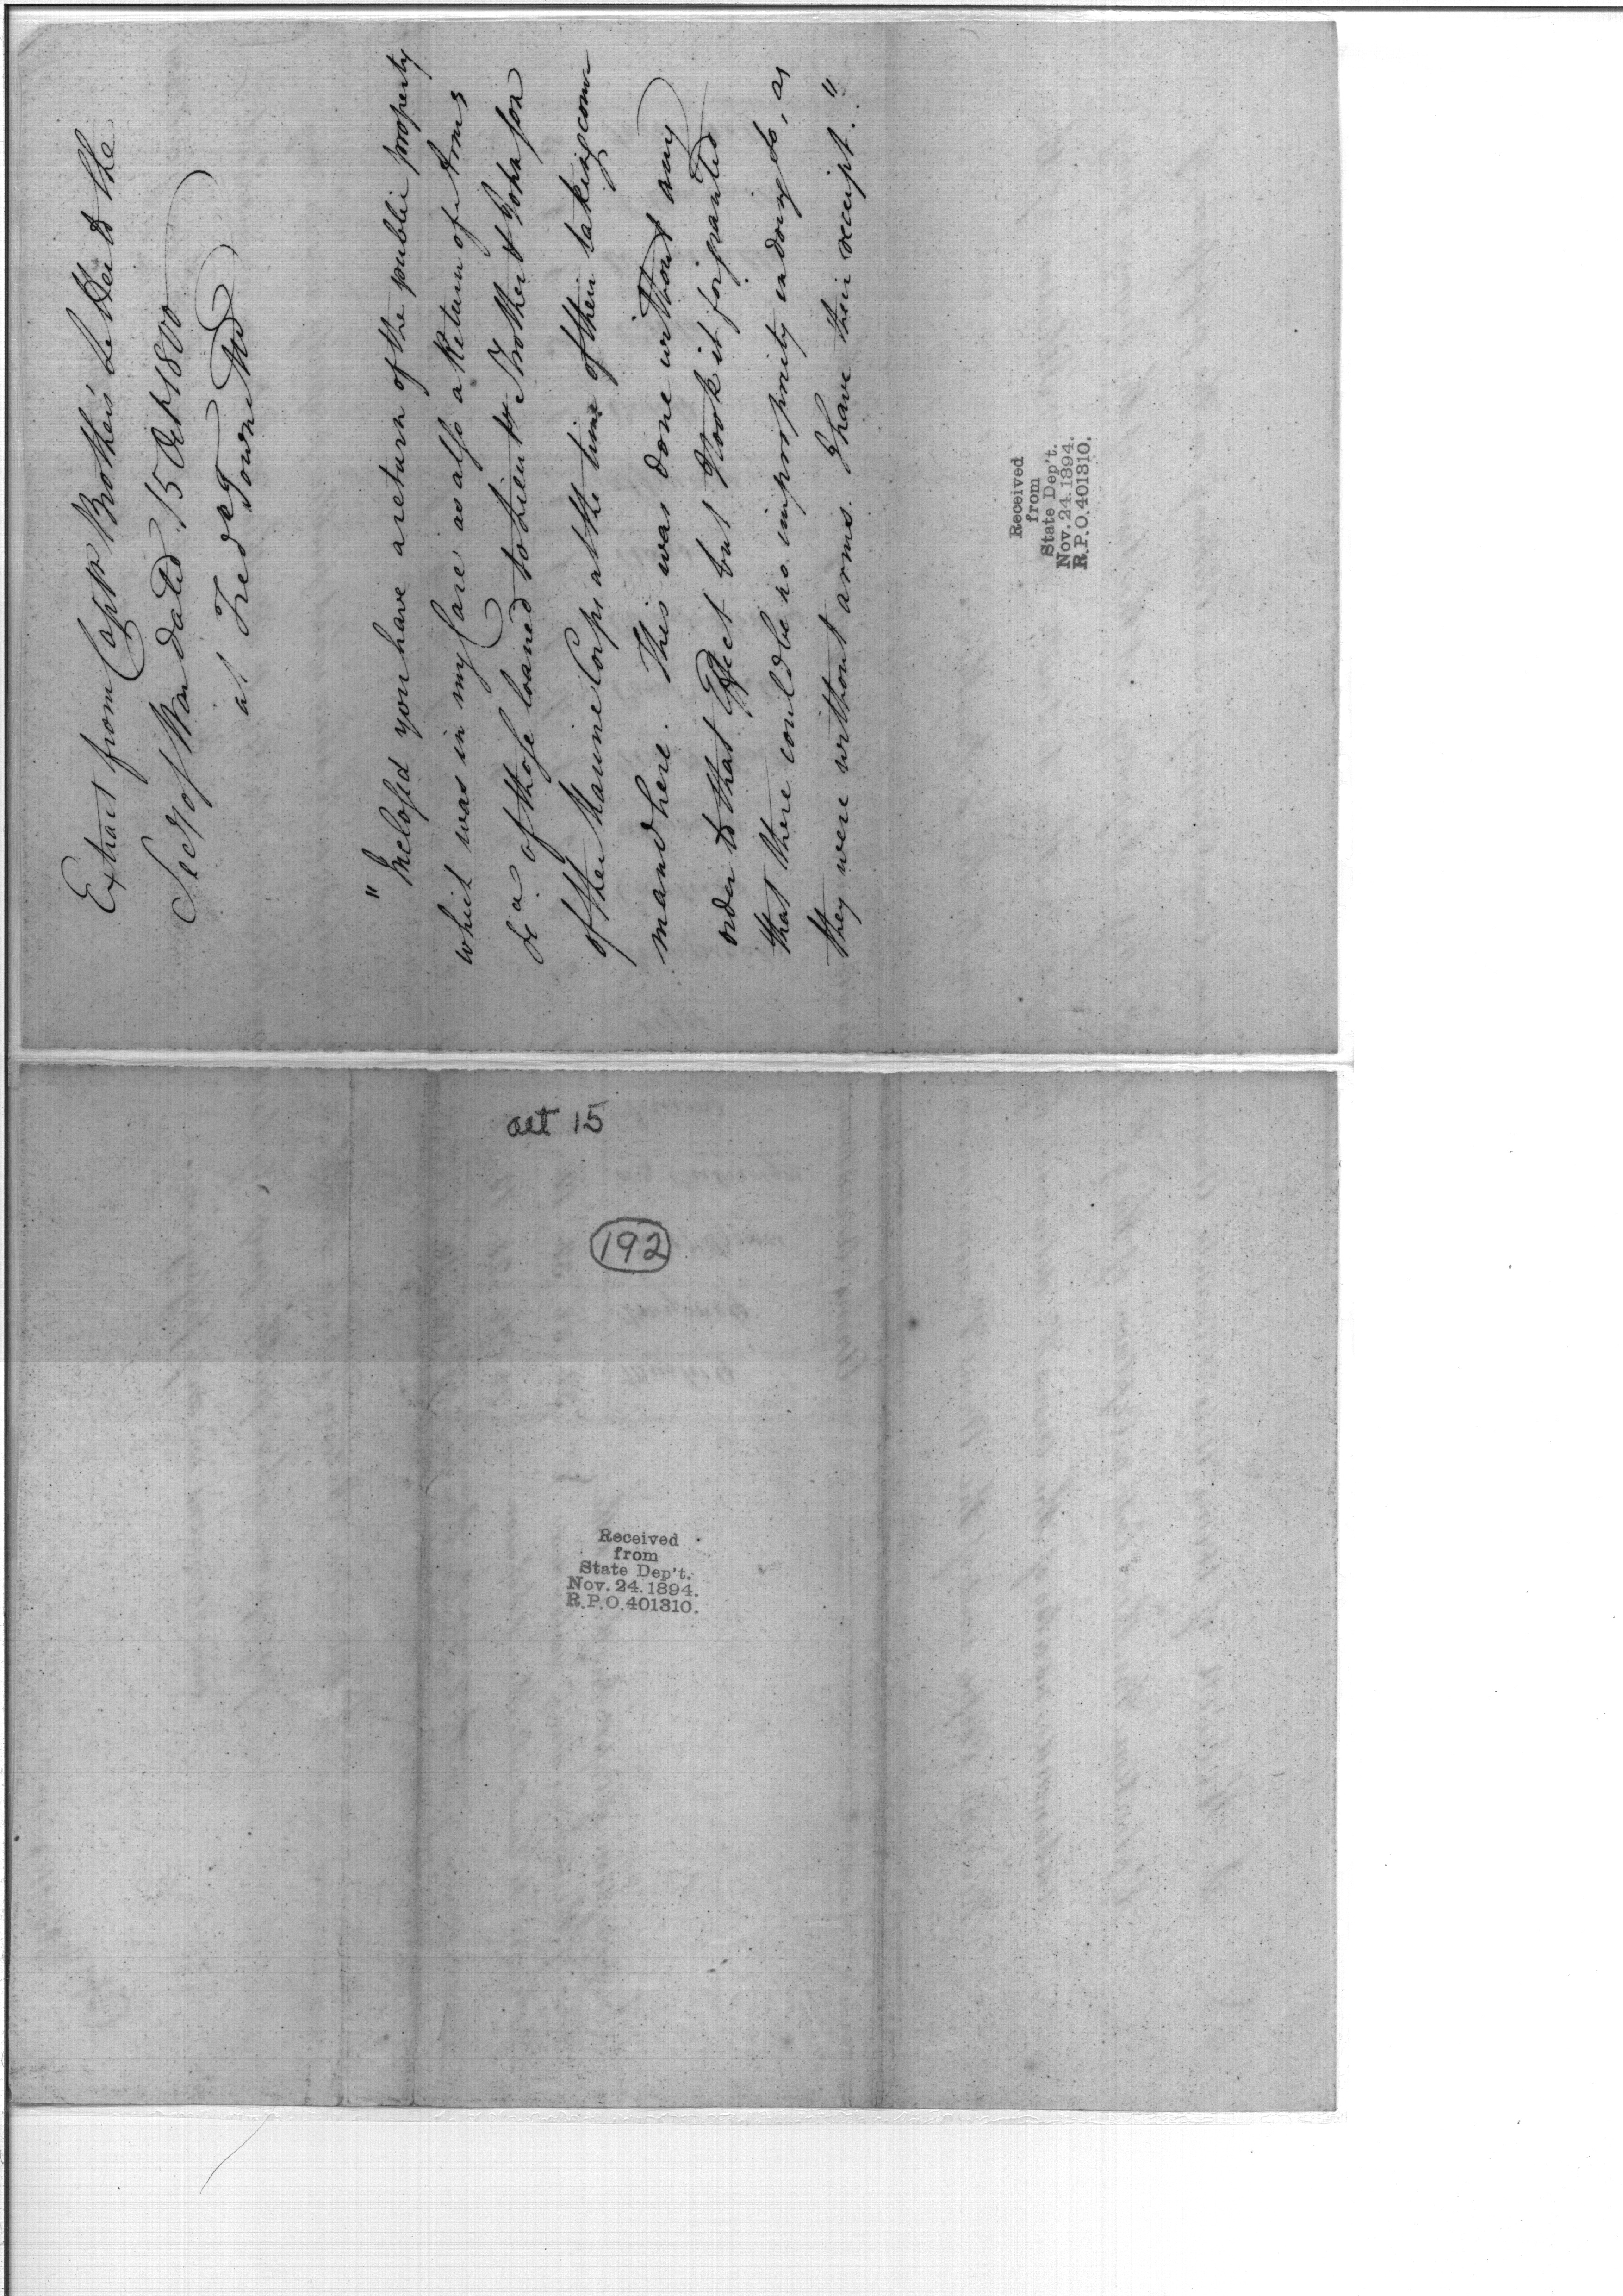 Extract from Capt Brother's Letter to the
Secy of War dated 15 Oct 1800
at Fred Town Md
"Inclosed you have a return of the public property
which was in my Care as also a Return of Arms
&c a of those loaned to Lieuts Strother &
of the Marine Corps at the time of their taking com
mand here. This was done without any
order to that Effect but I took it for granted
that there could be no impropriety in doing so, as
they were without arms. I have their receipt."
Received
from
State Dep't.
Nov. 24. 1894.
R.P.O. 401310.
oct 15
192
Received
from
State Dep't.
Nov. 24. 1894.
R.P.O. 401310.